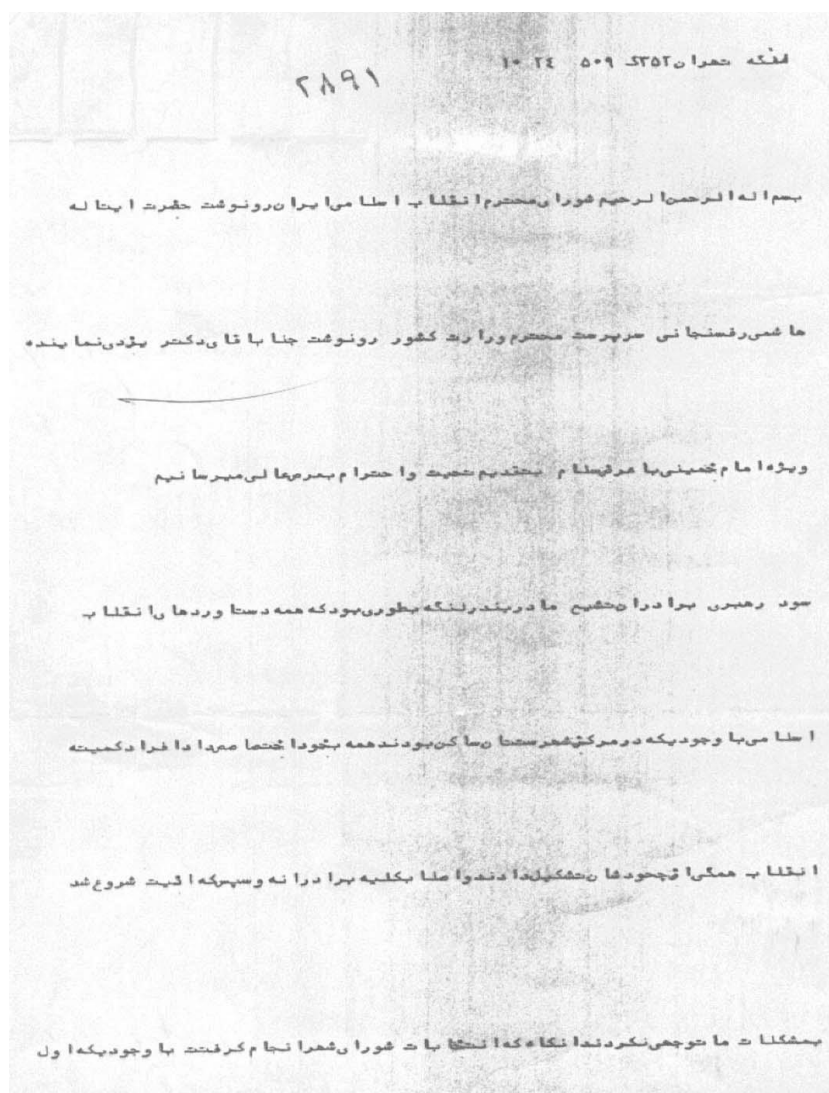 لنگه تهران ۳۵۲ک ۵۰۹ ۲۴ ۱۰
۲۸۹۱
بسم اله الرحمن الرحیم شورای محترم انقلاب اسلامی ایران رونوشت حضرت ایتاله
هاشمی رفسنجانی سرپرست محترم وزارت کشور رونوشت جناب اقای دکتر یزدی نماینده
ویژه امام خمینی با عرض سلام بتقدیم تحیت و احترام بعرضعالی میرسانیم
سود رهبری برادران تشیع ما در بندرلنگه بطوری بود که همه دست اوردهای انقلاب
اسلامی با وجودیکه در مرکز شهرستان ساکن بودند همه بخود اختصاص داد افراد کمیته
انقلاب همگی از خودشان تشکیل دادند و اصلا بکلیه برادرانه و سپس که اذیت شروع شد
بمشکلات ما توجهی نکردند انگاه که انتخابات شورای شهر انجام گرفتت با وجودیکه اول